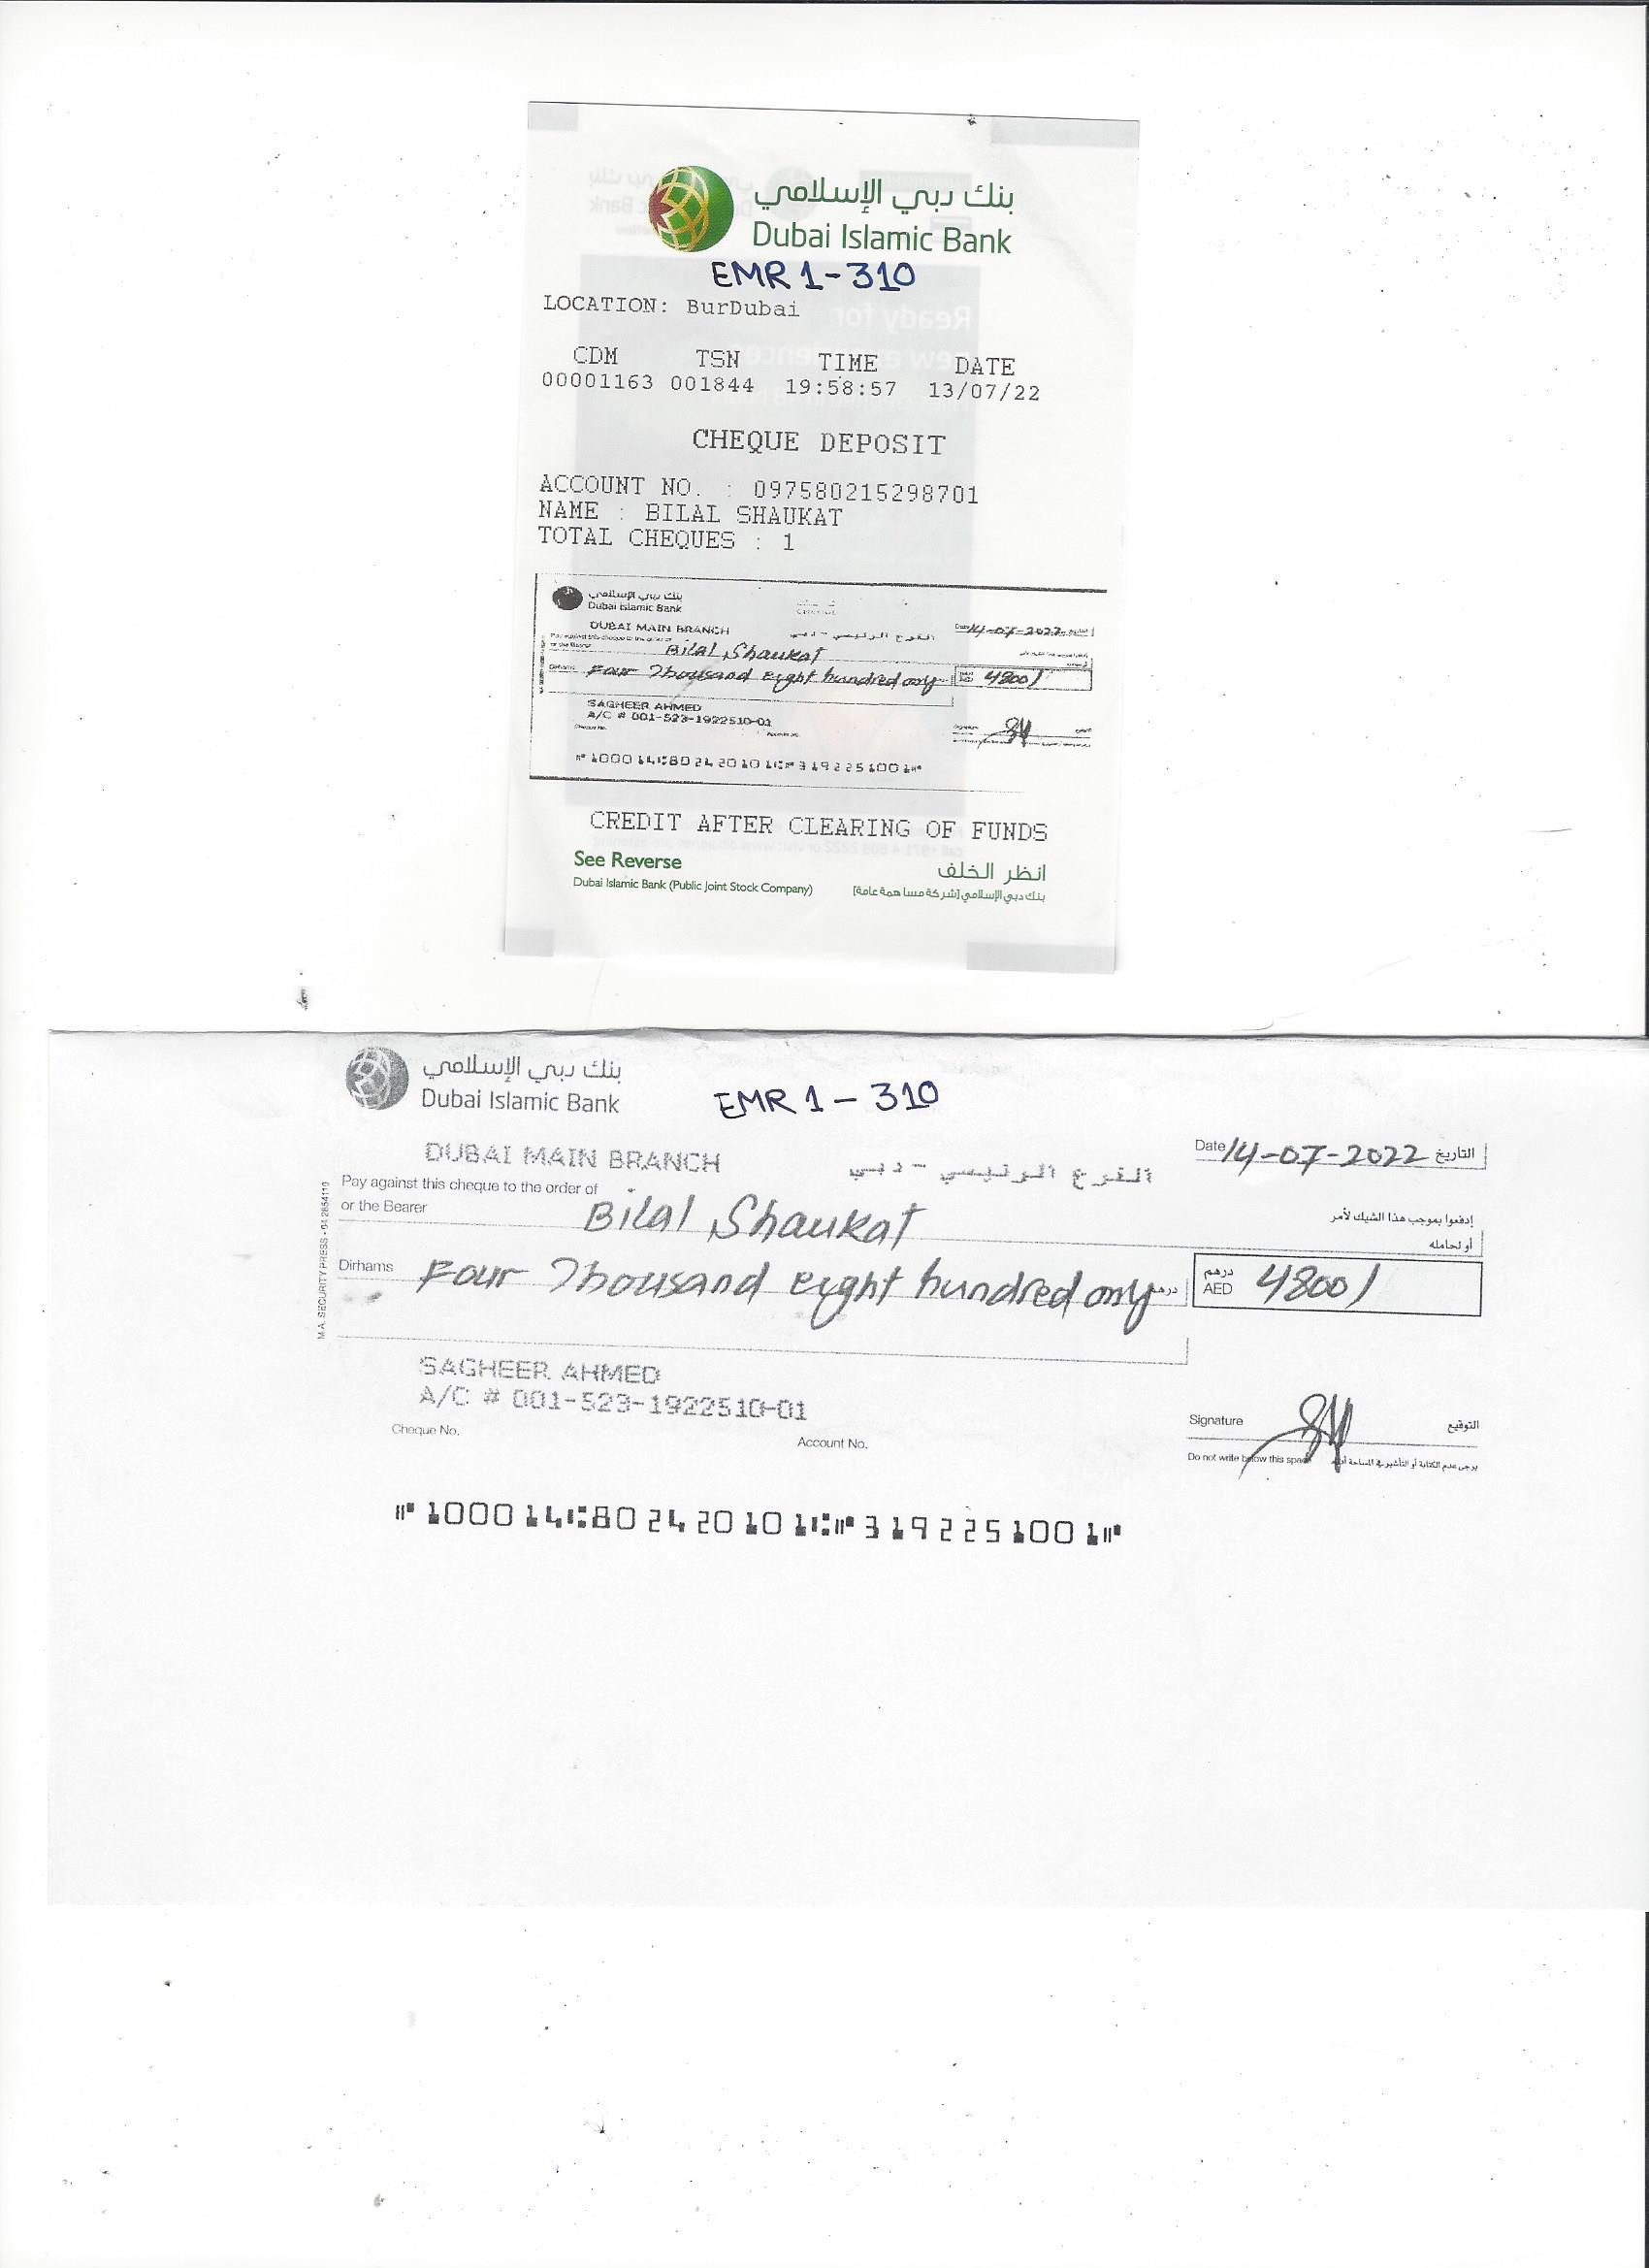 بنك دبي الإسلامي
Dubai Islamic Bank
EMR 1-310
LOCATION: BurDubai
CDM TSN TIME DATE
00001163 001844 19:58:57 13/07/22
CHEQUE DEPOSIT
ACCOUNT NO. : 097580215298701
NAME : BILAL SHAUKAT
TOTAL CHEQUES : 1
بنك دبي الإسلامي
Dubai Islamic Bank
DUBAI MAIN BRANCH الفرع الرئيسي - دبي Date 14-07-2022
Pay against this cheque to the order of
or the Bearer Bilal Shaukat
Dirhams Four Thousand eight hundred only 4800/
SAGHEER AHMED
A/C # 001-523-1922510-01
Cheque No. Account No. Signature
⑈100014⑆802420101⑆⑈3192251001⑈
CREDIT AFTER CLEARING OF FUNDS
See Reverse انظر الخلف
Dubai Islamic Bank (Public Joint Stock Company) بنك دبي الإسلامي (شركة مساهمة عامة)
بنك دبي الإسلامي
Dubai Islamic Bank
EMR 1 - 310
DUBAI MAIN BRANCH الفرع الرئيسي - دبي Date 14-07-2022 التاريخ
Pay against this cheque to the order of
or the Bearer Bilal Shaukat إدفعوا بموجب هذا الشيك لأمر
أو لحامله
Dirhams Four Thousand eight hundred only درهم درهم
AED 4800/
M.A. SECURITY PRESS - 04 2854119
SAGHEER AHMED
A/C # 001-523-1922510-01
Cheque No. Account No.
Signature التوقيع
Do not write below this space يرجى عدم الكتابة أو التأشير في المساحة
⑈100014⑆802420101⑆⑈3192251001⑈